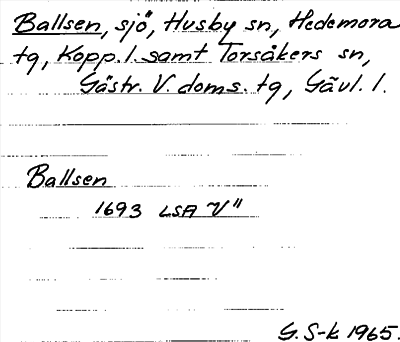 Ballsen, sjö, Husby sn, Hedemora
tg, Kopp. l. samt Torsåkers sn,
Gästr. V. doms. tg, Gävl. l.
Ballsen
1693 LSA V"
G. S-k 1965.